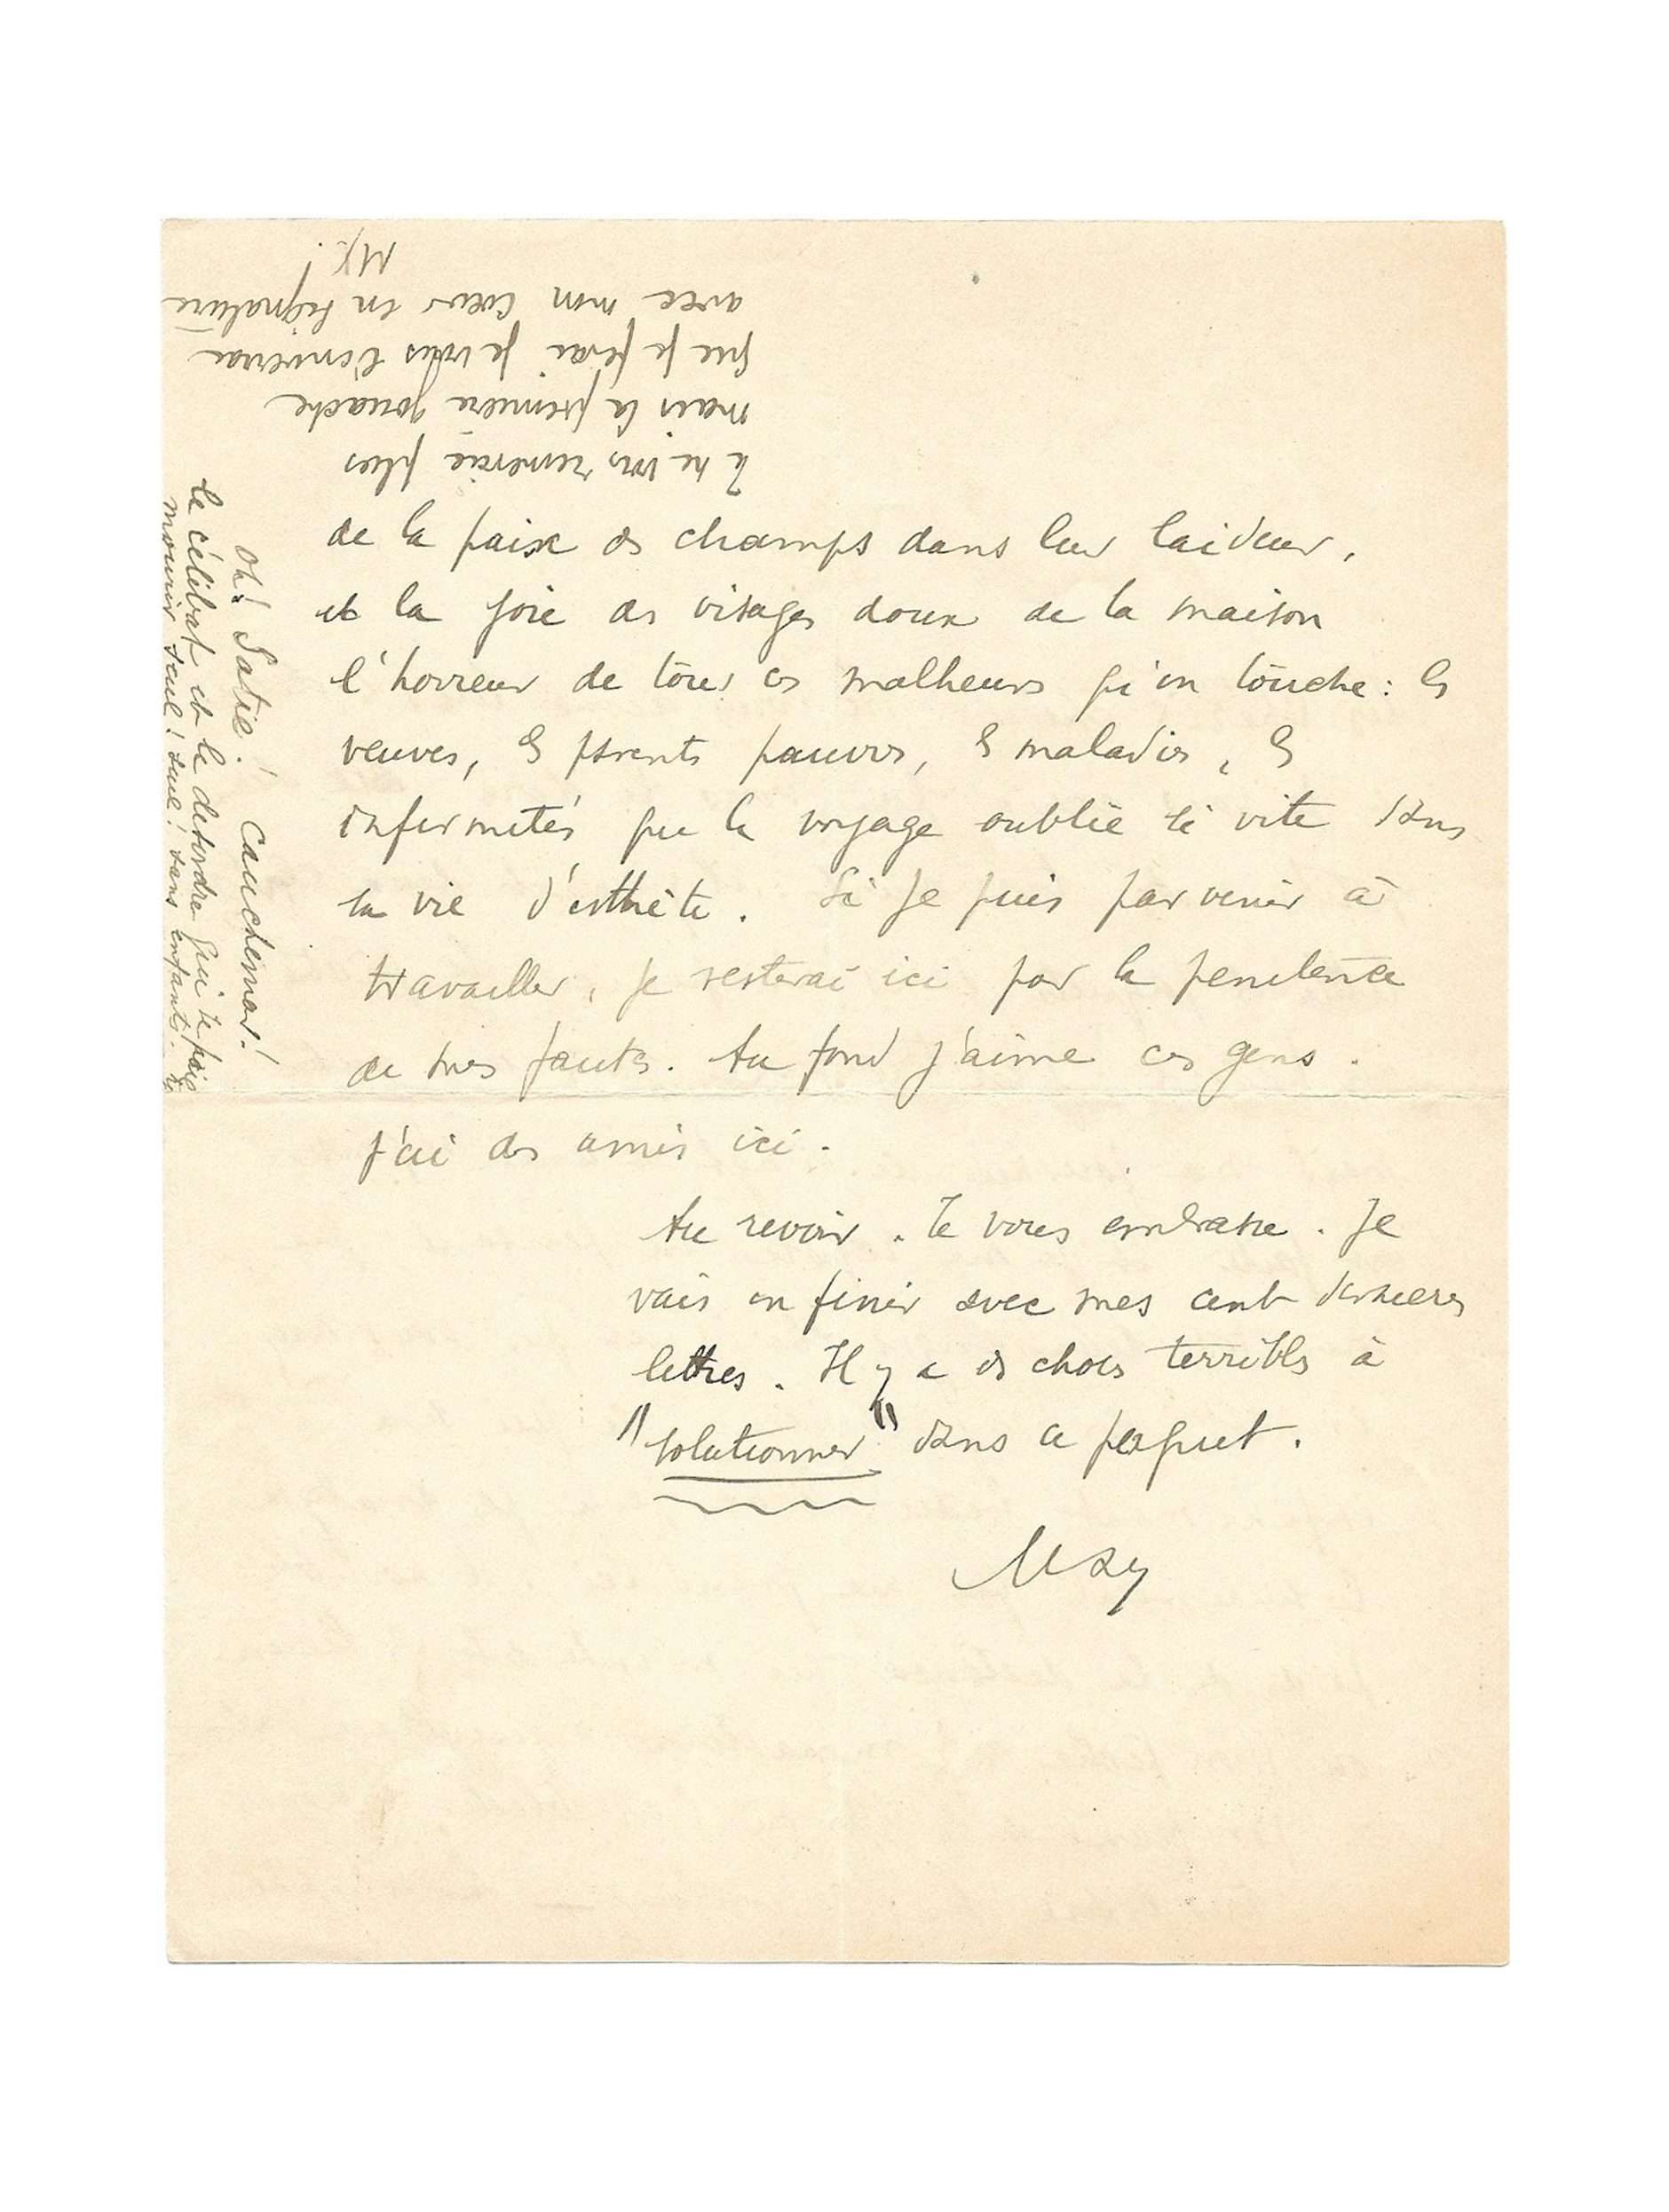 de la paix des champs dans leur laideur,
et la joie des visages doux de la maison
l'horreur de tous ces malheurs qu'on touche : les
veuves, les parents pauvres, les maladies, les
infirmités que le voyage oublie si vite dans
sa vie d'esthète. Si je puis parvenir à
travailler, je resterai ici par la penitence
de mes fautes. Au fond j'aime ces gens.
J'ai des amis ici.
Au revoir. Je vous embrasse. Je
vais en finir avec mes cent dernieres
lettres. Il y a des choses terribles à
"solutionner" dans ce paquet.
Max
Oh! Satie! Cauchemar!
le célibat et le désordre qui le paie
mourir seul! seul! sans enfants.
Je ne vous remercie plus
mais la première gouache
que je ferai je vous l'enverrai
avec mon coeur en signature
MX!